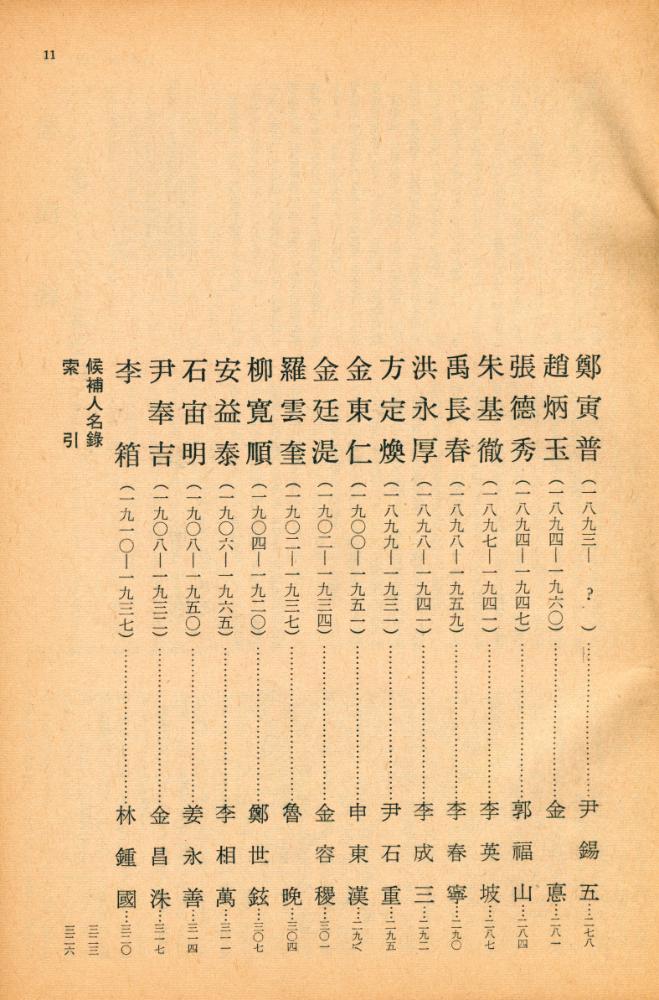 11
鄭寅普（一八九三—　?　）……尹錫五…二七八
趙炳玉（一八九四—一九六〇）……金　悳…二八一
張德秀（一八九四—一九四七）……郭福山…二八四
朱基徹（一八九七—一九四一）……李英坡…二八七
禹長春（一八九八—一九五九）……李春寧…二九〇
洪永厚（一八九八—一九四一）……李成三…二九二
方定煥（一八九九—一九三一）……尹石重…二九五
金東仁（一九〇〇—一九五一）……申東漢…二九八
金廷湜（一九〇二—一九三四）……金容稷…三〇一
羅雲奎（一九〇二—一九三七）……魯　晚…三〇四
柳寬順（一九〇四—一九二〇）……鄭世鉉…三〇七
安益泰（一九〇六—一九六五）……李相萬…三一一
石宙明（一九〇八—一九五〇）……姜永善…三一四
尹奉吉（一九〇八—一九三二）……金昌洙…三一七
李　箱（一九一〇—一九三七）……林鍾國…三二〇
候補人名錄　三二三
索　引　三二六